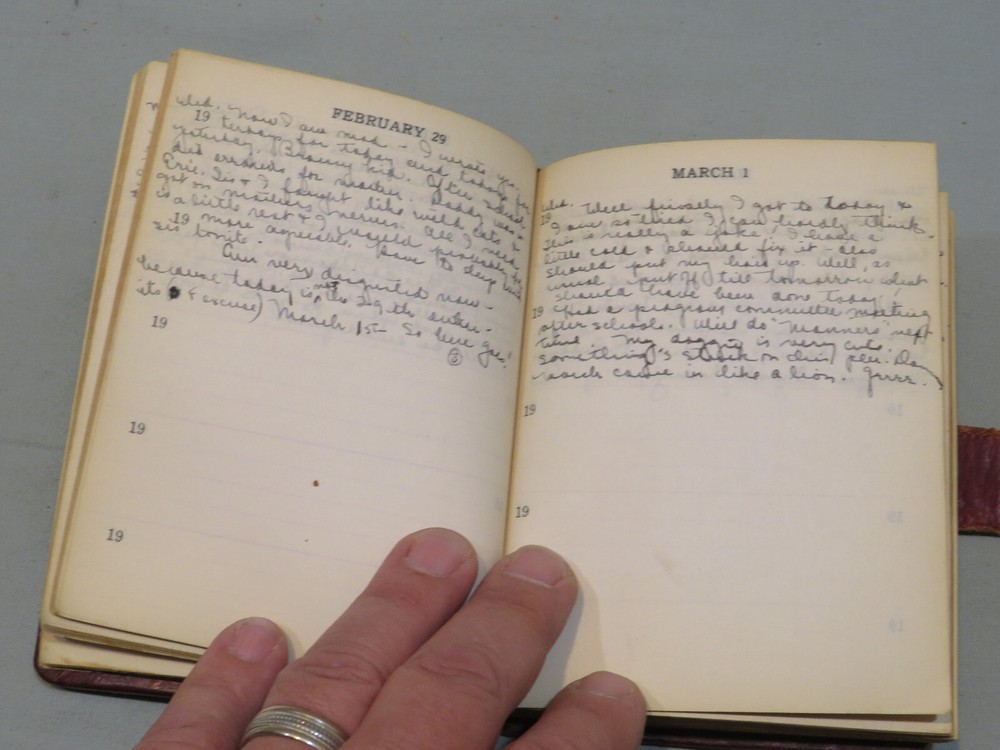 FEBRUARY 29
Wed. Now I am mad - I wrote yes-
19 terdays for today and todays for
yesterday. Brainy kid. After school
did errands for mother. Daddy was in
Erie. Sis & I fought like wild cats &
got on mothers nerves. All I need
is a little rest & I would probably be
19 more agreeable. Going to sleep with
sis tonite.
Am very disgusted now -
because today is not the 29th either -
its (excuse) March 1st - So here goes!
19
19
19
MARCH 1
Wed. Well finally I got to today &
19 I am so tired I can hardly think.
This is really a joke, I have a
little cold & should fix it - also
should put my hair up. Well, as
usual, put off till tomorrow what
should have been done today.
19 Had a program committee meeting
after school. Will do "Manners" next
time. My doggy is very cute.
Something's stuck on this pen. Darn
March came in like a lion. Grrrr.
19
19